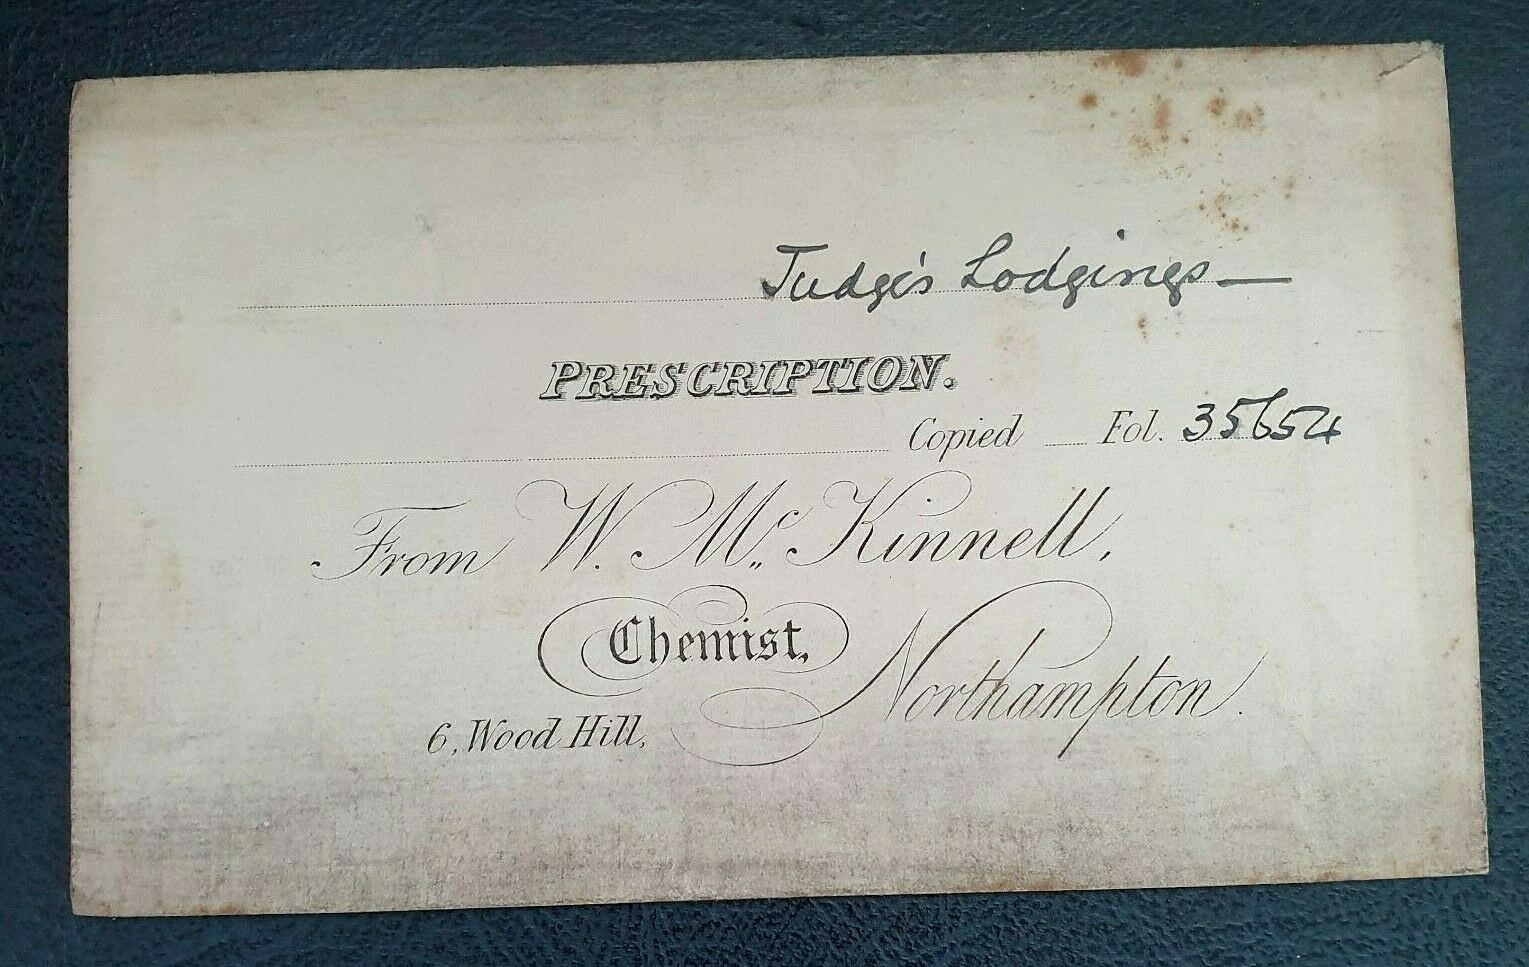 Judge's Lodgings—
PRESCRIPTION.
Copied Fol. 35654
From W. Mc. Kinnell,
Chemist,
Northampton.
6, Wood Hill,